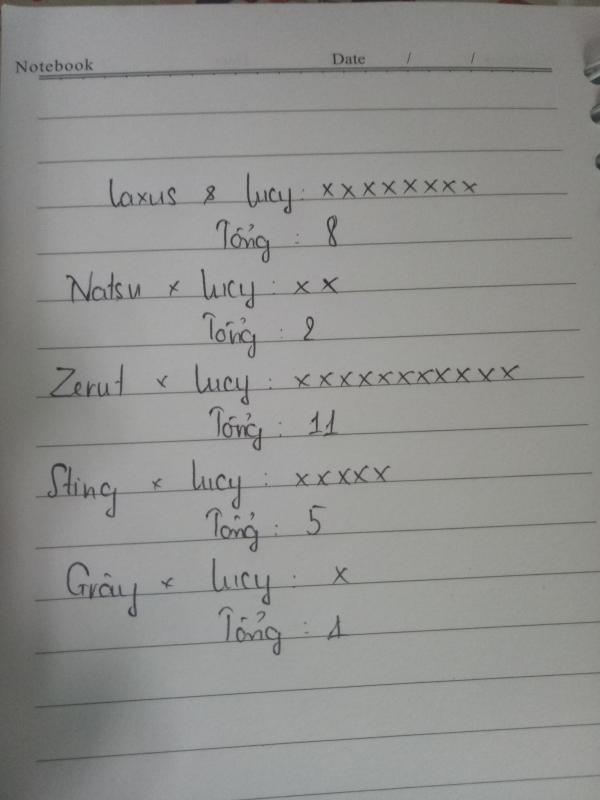 Notebook Date / /
Laxus & Lucy: xxxxxxxx
Tổng : 8
Natsu x Lucy : xx
Tổng : 2
Zeruf x Lucy : xxxxxxxxxxx
Tổng : 11
Sting x Lucy : xxxxx
Tổng : 5
Grây x Lucy : x
Tổng : 1